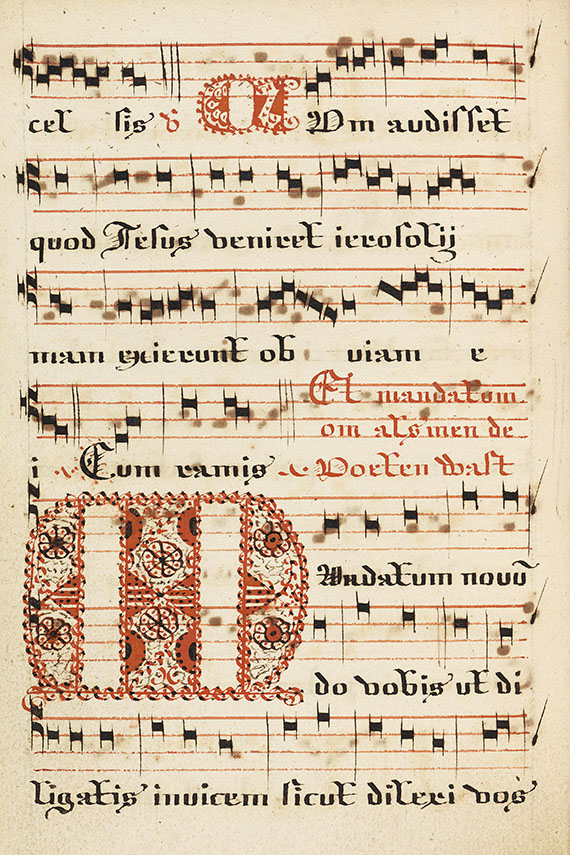 celsis ℣ CUm audisset
quod Jesus veniret ierosolij
mam exierunt ob viam e
Et mandatum
om als men de
i Cum ramis Voeten wast
MAndatum novū
do vobis ut di
ligatis invicem sicut dilexi vos